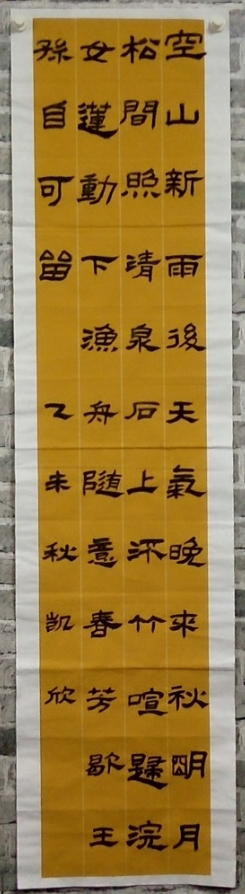 空山新雨後天氣晚來秋明月
松間照清泉石上流竹喧歸浣
女蓮動下漁舟隨意春芳歇王
孫自可留 乙未秋凱欣